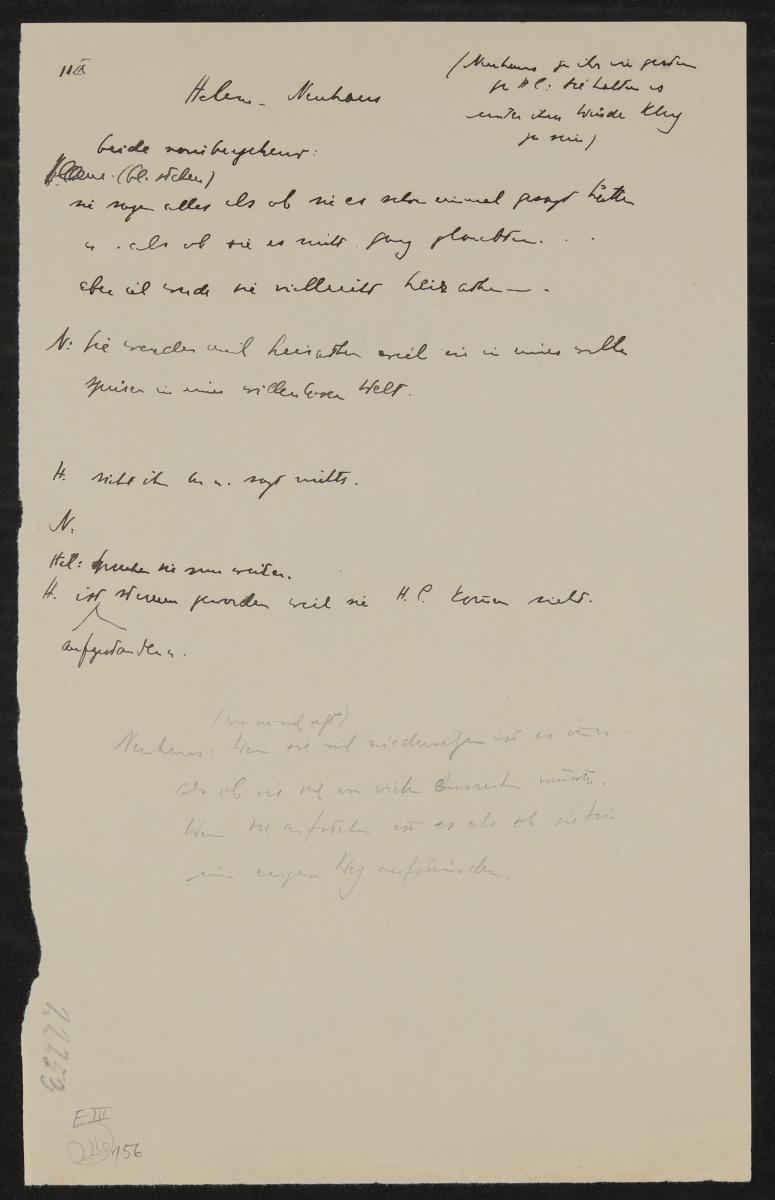 11 IX
Helene - Neuhaus
(Neuhaus zu ihr wie gestern
zu H C: Sie halten es
unter ihrer Würde klug
zu sein)
beide vorübergehend:
Helene (bl. stehen)
sie sagen alles als ob sie es schon einmal gesagt hätten
u. als ob sie es nicht ganz glaubten. . .
aber ich werde sie vielleicht heiraten — .
N: Sie werden mich heiraten weil sie in einer
in einer willenlosen Welt.
H. sieht ihn an u. sagt nichts.
N:
Hel: Sprechen sie nur weiter.
H. ist stumm geworden weil sie H. C. kommen sieht.
aufgestanden u.
Neuhaus: Wenn sie sich niedersetzen ist es immer
als ob sie sich von vielem ausruhen müssten.
Wenn sie aufstehen ist es als ob sie für
einen ewigen Weg aufstünden.
22253
E III
156